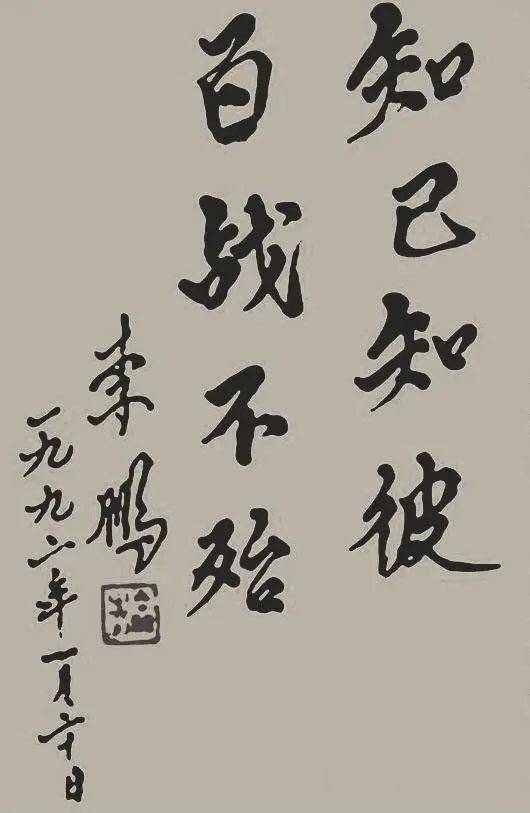 知己知彼
百战不殆
李鹏
一九九六年一月二十日